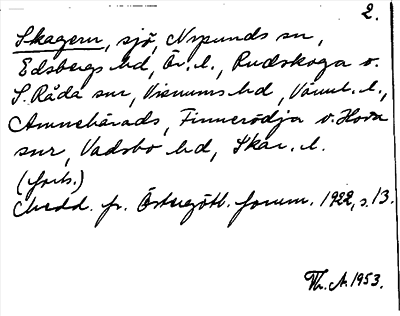 2.
Skagern, sjö, Nysunds sn,
Edsbergs hd, Ör. l., Rudskoga o.
S. Råda snr, Visnums hd, Värml. l.,
Amnehärads, Finnerödja o. Hova
snr, Vadsbo hd, Skar. l.
(forts.)
Medd. fr. Östergötl. fornm. 1922, s. 13.
Th. A. 1953.